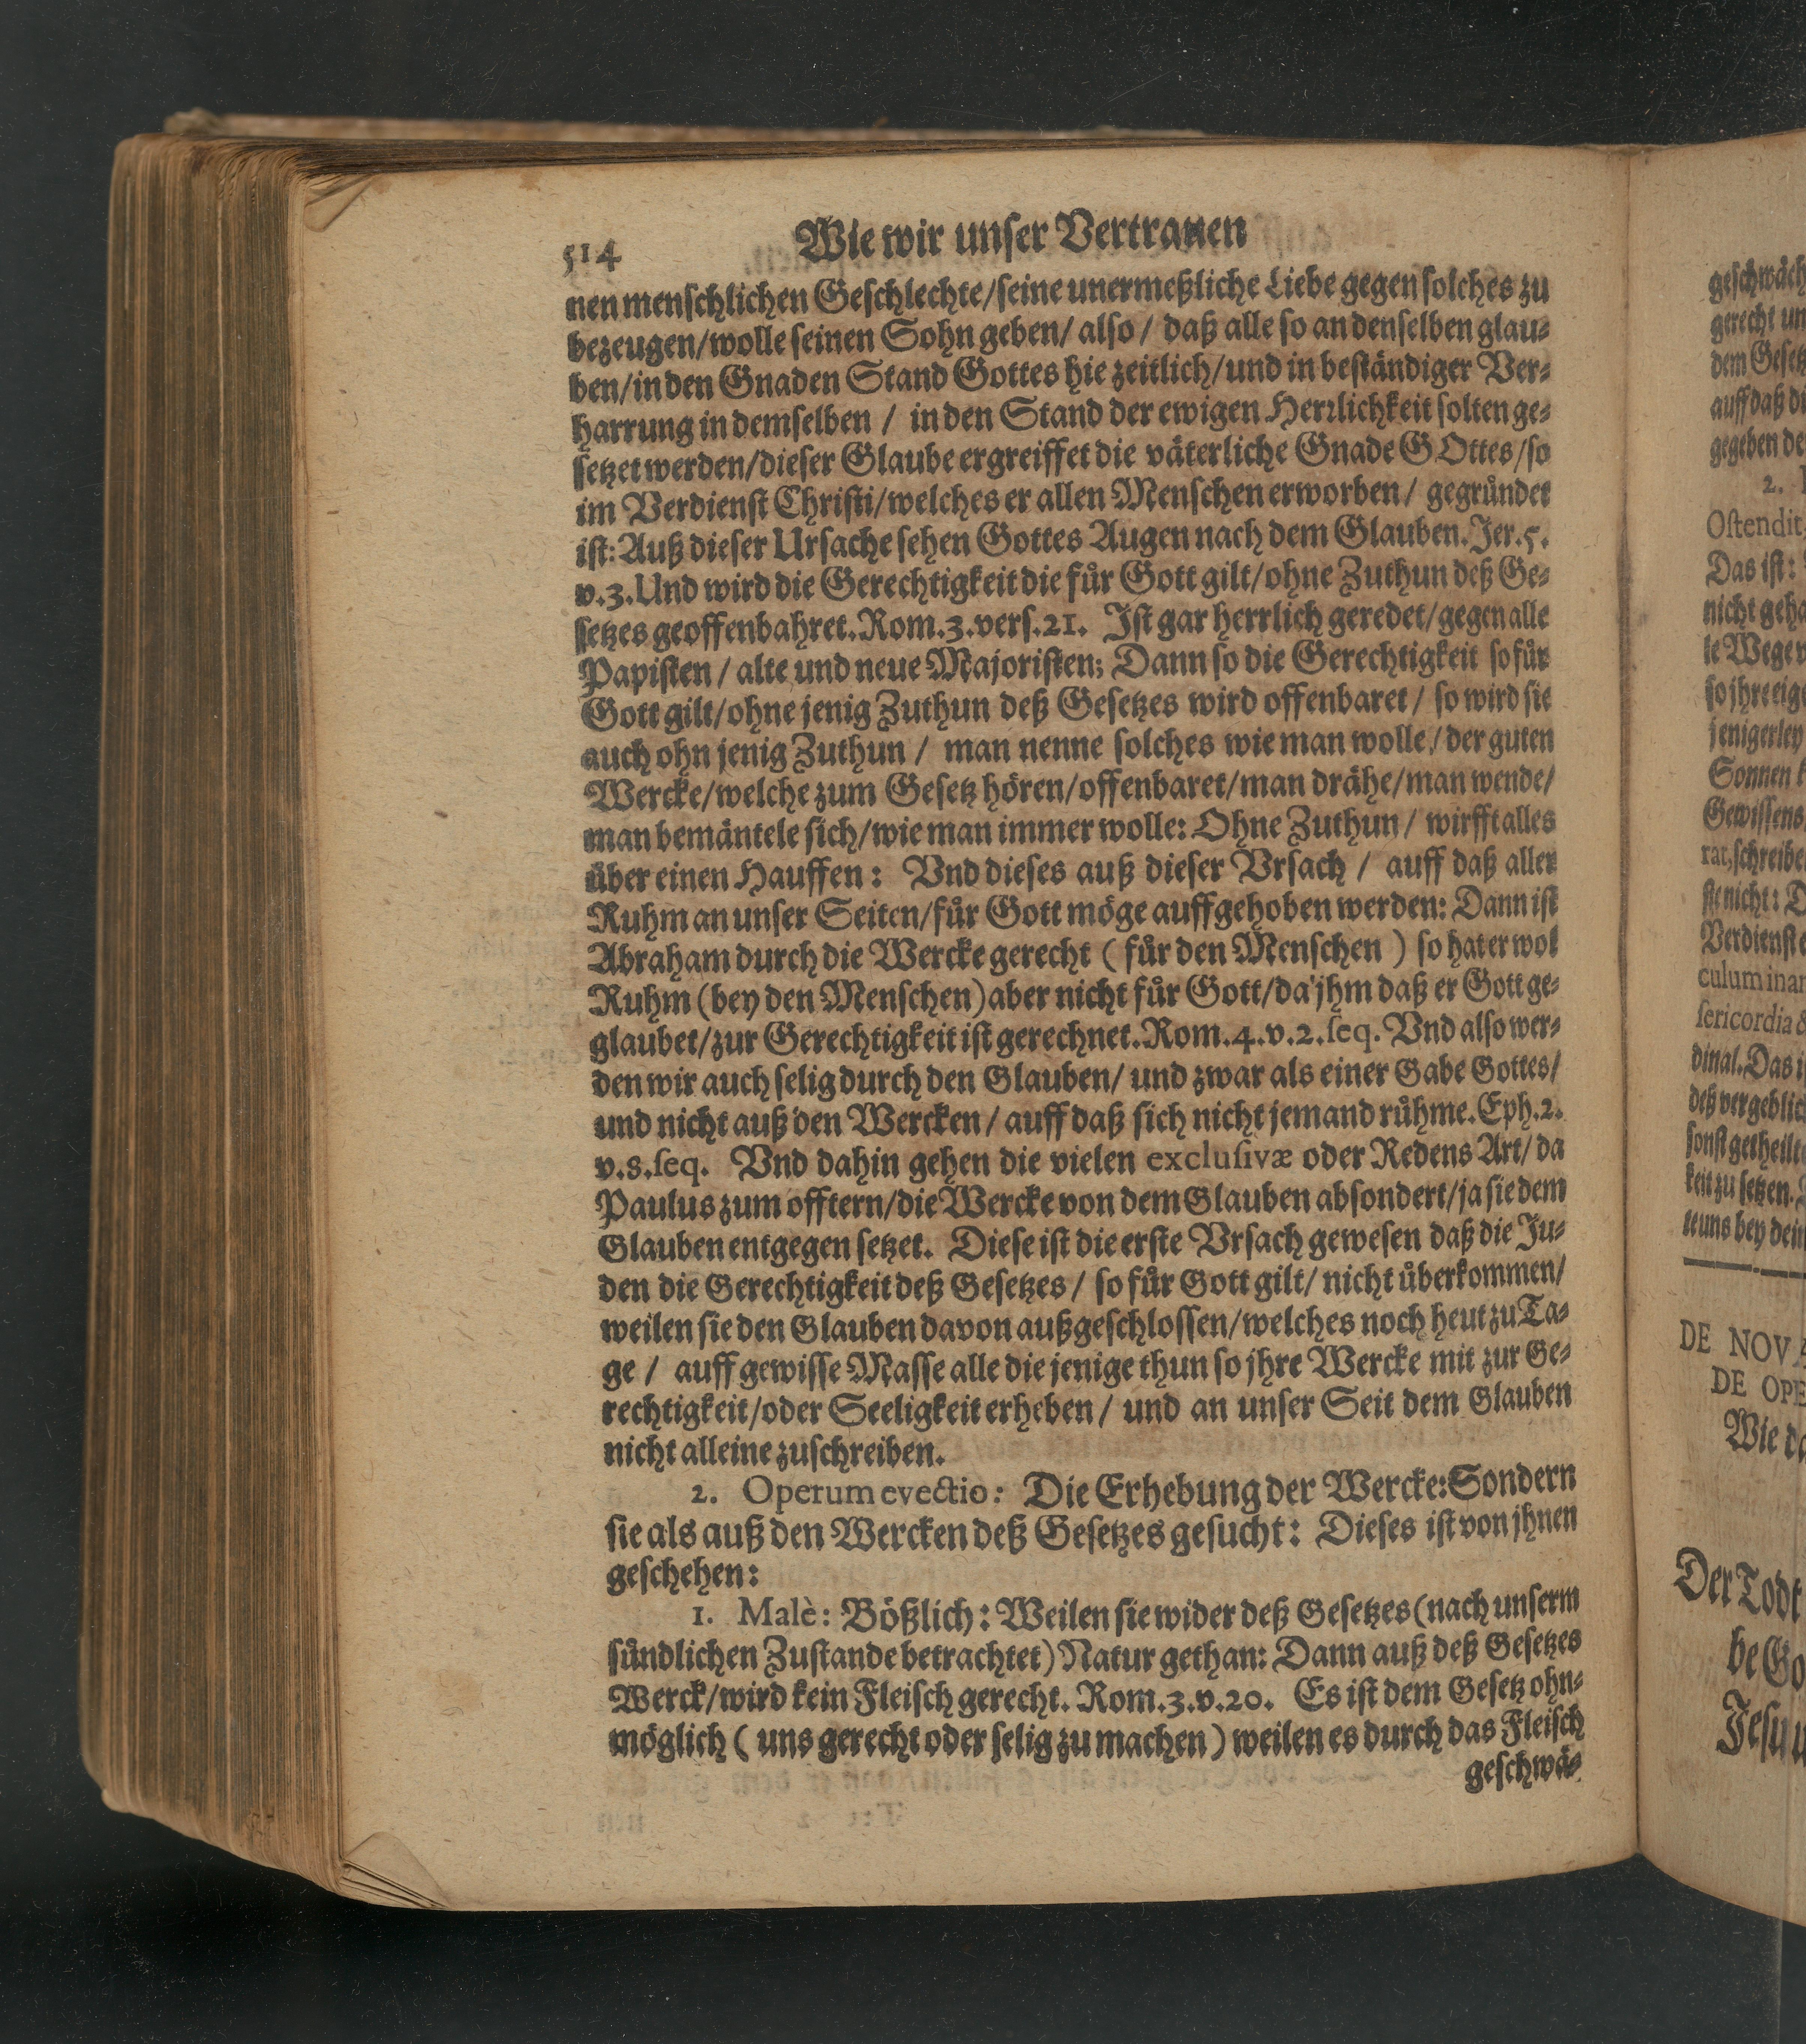 514 Wie wir unser Vertrauen
nen menschlichen Geschlechte/seine unermeßliche Liebe gegen solches zu
bezeugen/wolle seinen Sohn geben/ also/ daß alle so an denselben glau-
ben/in den Gnaden Stand Gottes hie zeitlich/und in beständiger Ver-
harrung in demselben / in den Stand der ewigen Herrlichkeit solten ge-
setzet werden/dieser Glaube ergreiffet die väterliche Gnade GOttes/so
im Verdienst Christi/welches er allen Menschen erworben/ gegründet
ist: Auß dieser Ursache sehen Gottes Augen nach dem Glauben. Jer.5.
v.3. Und wird die Gerechtigkeit die für Gott gilt/ohne Zuthun deß Ge-
setzes geoffenbahret. Rom.3.vers.21. Ist gar herrlich geredet/gegen alle
Papisten / alte und neue Majoristen; Dann so die Gerechtigkeit so für
Gott gilt/ohne jenig Zuthun deß Gesetzes wird offenbaret/ so wird sie
auch ohn jenig Zuthun / man nenne solches wie man wolle/ der guten
Wercke/welche zum Gesetz hören/offenbaret/man drähe/man wende/
man bemäntele sich/wie man immer wolle: Ohne Zuthun/ wirfft alles
über einen Hauffen: Vnd dieses auß dieser Vrsach / auff daß aller
Ruhm an unser Seiten/für Gott möge auffgehoben werden: Dann ist
Abraham durch die Wercke gerecht ( für den Menschen ) so hat er wol
Ruhm (bey den Menschen) aber nicht für Gott/da jhm daß er Gott ge-
glaubet/zur Gerechtigkeit ist gerechnet. Rom.4.v.2.seq. Vnd also wer-
den wir auch selig durch den Glauben/ und zwar als einer Gabe Gottes/
und nicht auß den Wercken/ auff daß sich nicht jemand rühme. Eph.2.
v.8.seq. Vnd dahin gehen die vielen exclusivæ oder Redens Art/ da
Paulus zum offtern/die Wercke von dem Glauben absondert/ja sie dem
Glauben entgegen setzet. Diese ist die erste Vrsach gewesen daß die Ju-
den die Gerechtigkeit deß Gesetzes/ so für Gott gilt/ nicht überkommen/
weilen sie den Glauben davon außgeschlossen/welches noch heut zu Ta-
ge / auff gewisse Masse alle die jenige thun so jhre Wercke mit zur Ge-
rechtigkeit/oder Seeligkeit erheben/ und an unser Seit dem Glauben
nicht alleine zuschreiben.
2. Operum evectio: Die Erhebung der Wercke: Sondern
sie als auß den Wercken deß Gesetzes gesucht: Dieses ist von jhnen
geschehen:
1. Malè: Bößlich: Weilen sie wider deß Gesetzes (nach unserm
sündlichen Zustande betrachtet) Natur gethan: Dann auß deß Gesetzes
Werck/wird kein Fleisch gerecht. Rom.3.v.20. Es ist dem Gesetz ohn-
möglich ( uns gerecht oder selig zu machen ) weilen es durch das Fleisch
geschwä-
geschwäch
gerecht un
dem Gesetz
auff daß di
gegeben de
2.
Ostendit,
Das ist:
nicht geha
le Wege v
so jhre eig
jenigerley
Sonnen k
Gewissens
rat, schreibe
ste nicht: D
Verdienst e
culum inan
sericordia &
dinal. Das i
deß vergeblic
sonst getheilt
keit zu setzen.
te uns bey dein
DE NOVA
DE OPE
Wie da
Der Todt
be Go
Jesu u